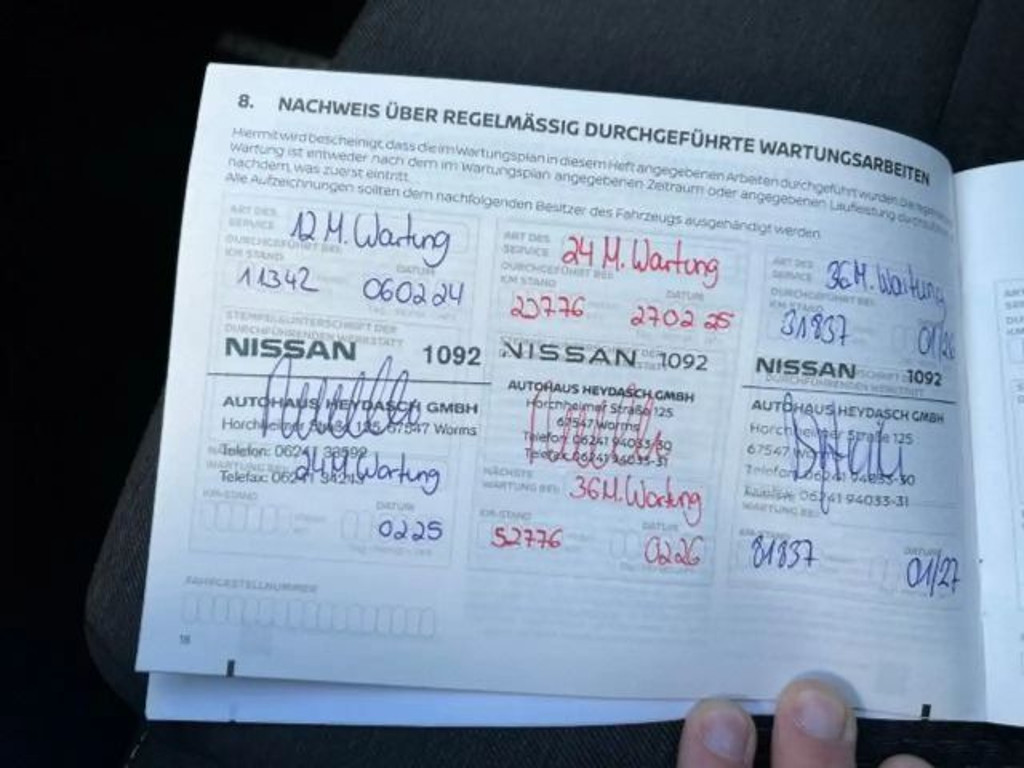 8. NACHWEIS ÜBER REGELMÄSSIG DURCHGEFÜHRTE WARTUNGSARBEITEN
Hiermit wird bescheinigt, dass die im Wartungsplan in diesem Heft angegebenen Arbeiten durchgeführt wurden. Die
Wartung ist entweder nach dem im Wartungsplan angegebenen Zeitraum oder angegebenen Laufleistung
nachdem, was zuerst eintritt.
Alle Aufzeichnungen sollten dem nachfolgenden Besitzer des Fahrzeugs ausgehändigt werden.
ART DES SERVICE 12 M. Wartung
DURCHGEFÜHRT BEI:
KM STAND DATUM
11342 060224
STEMPEL/UNTERSCHRIFT DER
DURCHFÜHRENDEN WERKSTATT
NISSAN 1092
AUTOHAUS HEYDASCH GMBH
Horchheimer Straße 125 67547 Worms
Telefon: 06241
Telefax: 06241
WARTUNG BEI: 24 M. Wartung
KM-STAND DATUM
0225
FAHRGESTELLNUMMER
18
ART DES SERVICE 24 M. Wartung
DURCHGEFÜHRT BEI:
KM STAND DATUM
23776 270225
NISSAN 1092
AUTOHAUS HEYDASCH GMBH
Horchheimer Straße 125
67547 Worms
Telefon: 06241 94033-30
Telefax: 06241 94033-31
NÄCHSTE
WARTUNG BEI: 36 M. Wartung
KM-STAND DATUM
52776 0226
ART DES SERVICE 36 M. Wartung
DURCHGEFÜHRT BEI:
KM STAND
31837 01/26
NISSAN 1092
AUTOHAUS HEYDASCH GMBH
Horchheimer Straße 125
67547
Telefon: 06241 94033-30
06241 94033-31
WARTUNG BEI:
DATUM
81837 01/27